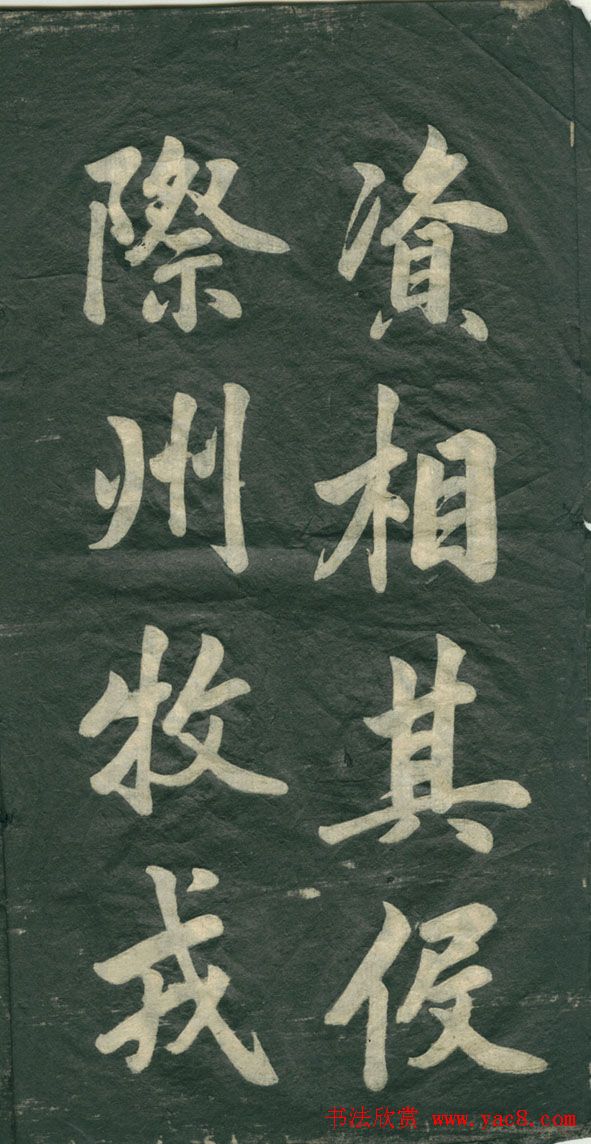 資相其假
際州牧戎
书法欣赏 www.yac8.com